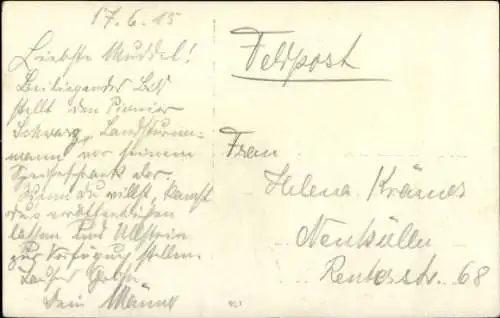 17.6.15
Liebste Muddel!
Beiliegendes Bild
stellt den Pionier
Schwarz, Landsturm-
mann vor seinem
Speiseschrank dar.
Wenn du willst, kannst
du's veröffentlichen
lassen und Ullstein
zur Verfügung stellen.
Dein Männe
Feldpost
Frau
Helena Krämer
Neukölln
Reuterstr. 68